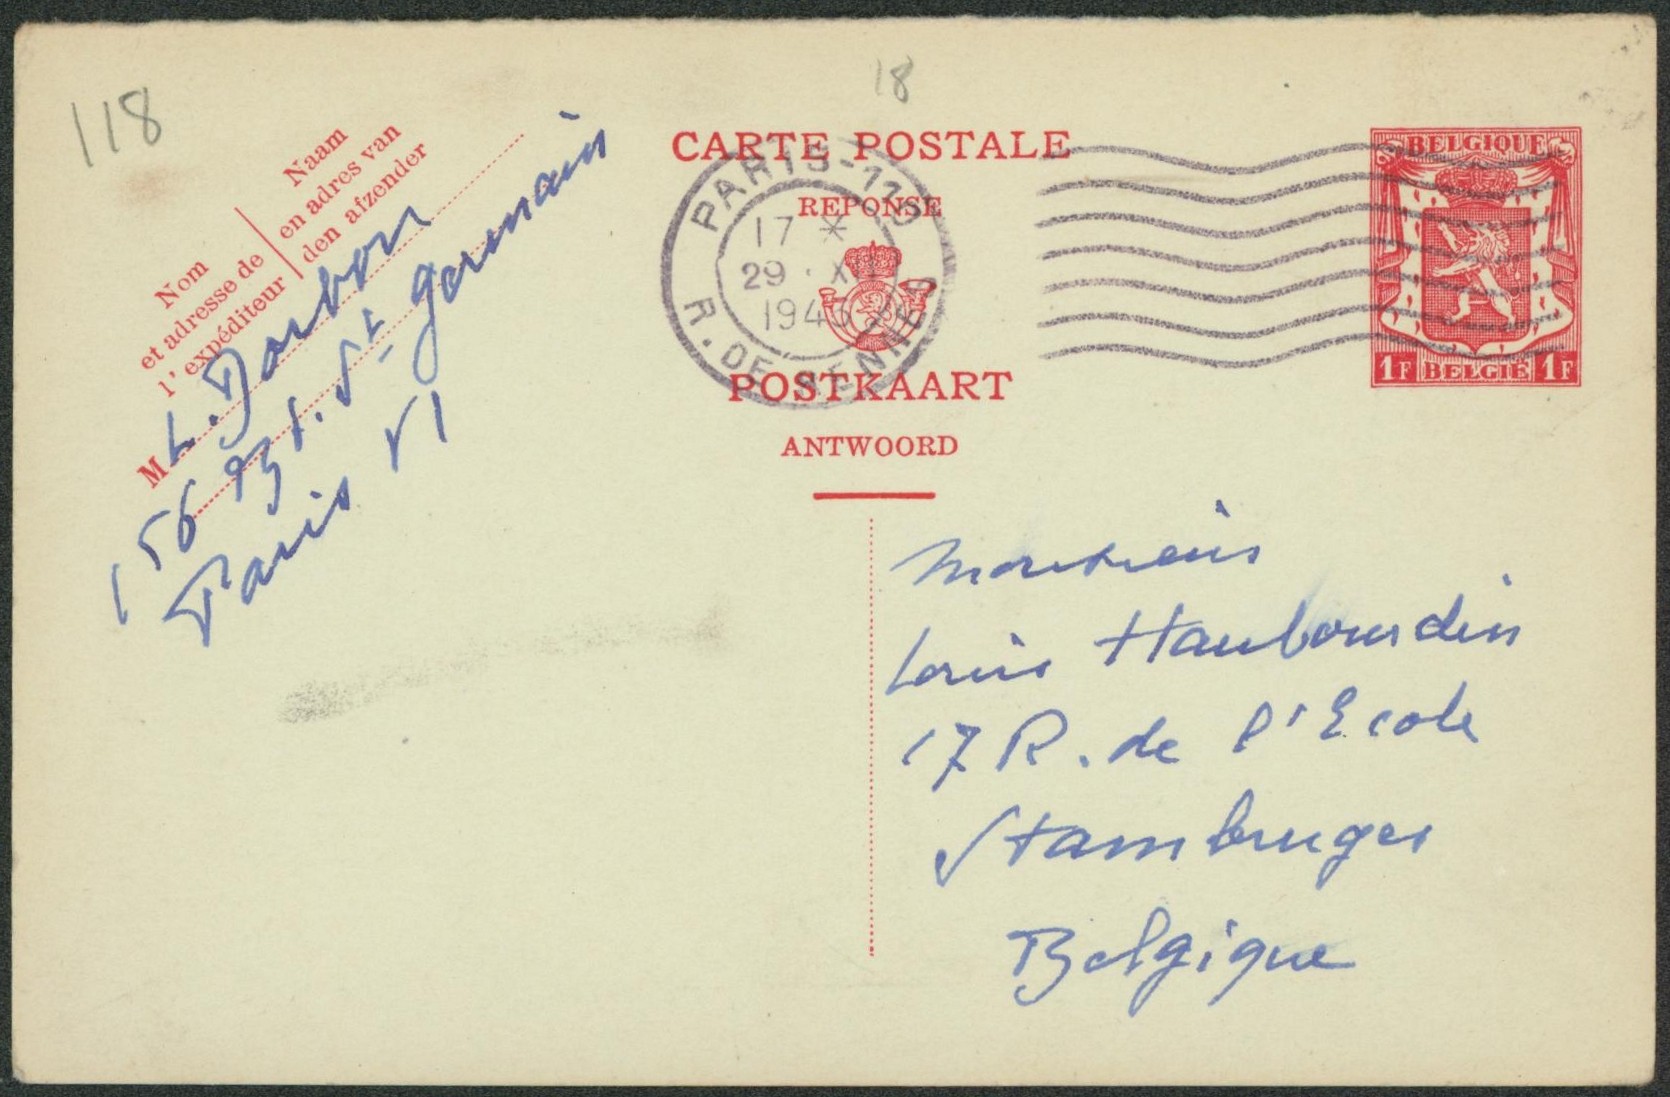 118
18
Nom
et adresse de
l'expéditeur
Naam
en adres van
den afzender
M L. Darbon
156 Bd. St Germain
Paris VI
CARTE POSTALE
REPONSE
PARIS-110
17 *
29 · XII
1945
R. DE RENNES
POSTKAART
ANTWOORD
BELGIQUE
1F BELGIE 1F
Monsieur
Louis Haubourdin
17 R. de l'Ecole
Stambruges
Belgique